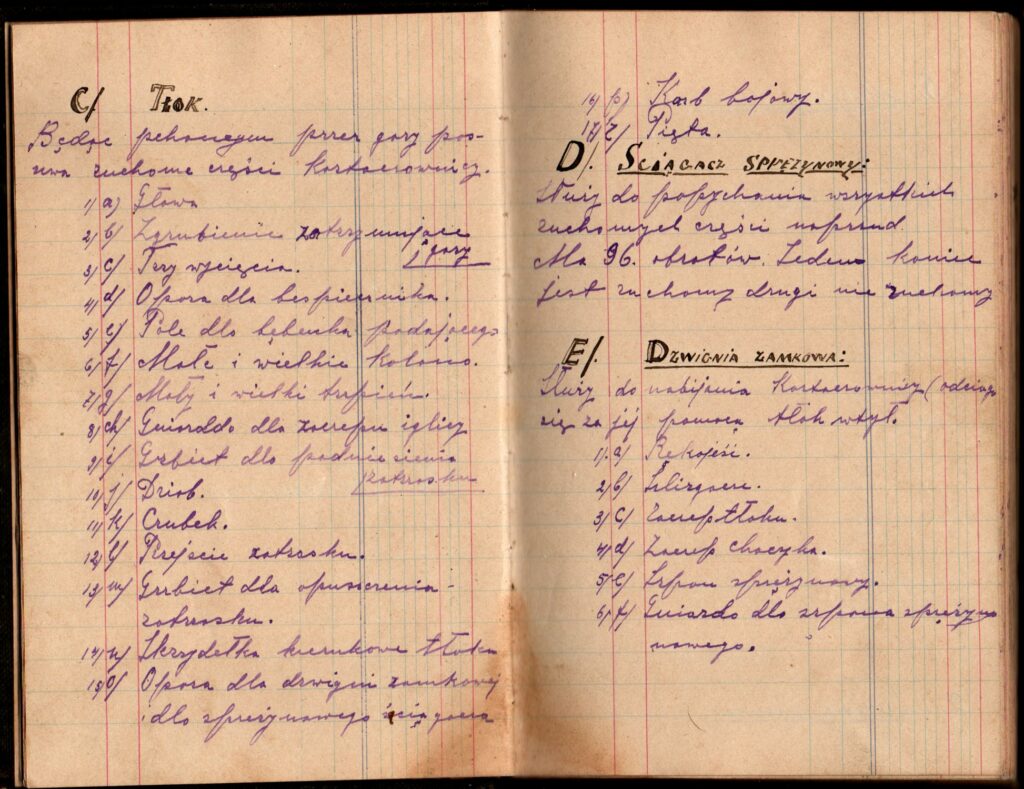 C/ TŁOK.
Będąc pchanym przez gazy pos-
uwa ruchome części Karta
1) a) Głowa
2) b) Zgrubienie zatrzymujące
gazy
3) c) Trzy wycięcia.
4) d) Opora dla bespiecznika.
5) e) Pole dla bębenka podającego
6) f) Małe i wielkie kolano.
7) g) Mały i wielki trzpień.
8) ch) Gniazddo dla zaczepu iglicy
9) i) Grzbiet dla podniesienia
zatrzasku
10) j) Dziob.
11) k) Czubek.
12) l) Przejście zatrzasku.
13) m) Grzbiet dla opuszczenia-
zatrzasku.
14) n) Skrzydełka kierukowe tłoka
15) o) Opora dla dzwigni zamkowej
i dla sprężynowego ściągacza
16) p) Karb bojowy.
17) r) Pięta.
D/. ŚCIĄGACZ SPRĘŻYNOWY:
Służy do popychania wszystkich
ruchomych części naprzud
Ma 96. obrotów. Jeden koniec
jest ruchomy drugi nie ruchomy
E/. DZWIGNIA ZAMKOWA:
Służy do nabijania (odciąg
się za jej pomocą tłok wtył.
1). a) Rękojeść.
2) b) Ślizgacze.
3) c) Zaczep tłoka.
4) d) Zaczep haczyka.
5) e) Szpon sprężynowy.
6) f) Gniazdo dla szpona spręży
nowego.